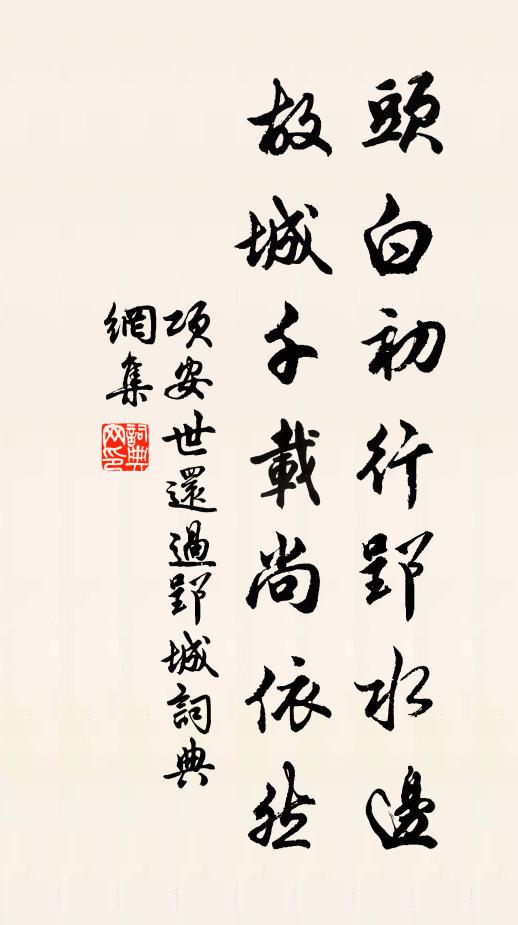 頭白初行郢水邊
故城千載尚依然
項安世還過郢城詞典
網集
詞典
网印